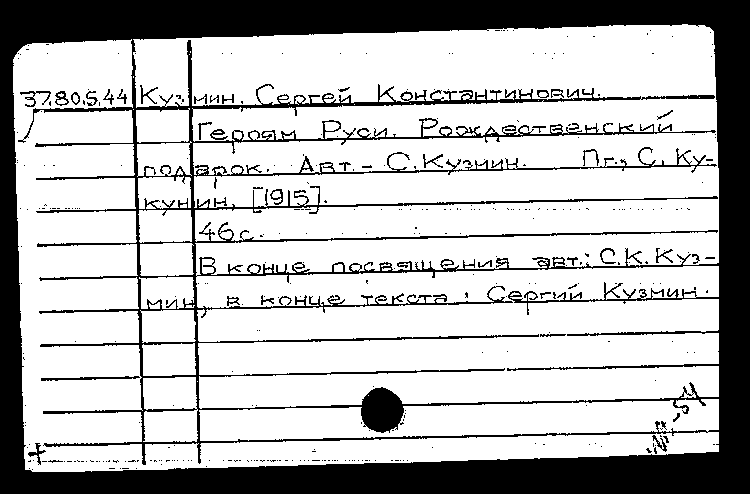 37.80.5.44 Кузмин, Сергей Константинович.
Героям Руси. Рождественский
подарок. Авт. - С. Кузмин. Пг., С. Ку-
кунин, [1915].
46 с.
В конце посвящения авт.: С.К. Куз-
мин, в конце текста: Сергий Кузмин.